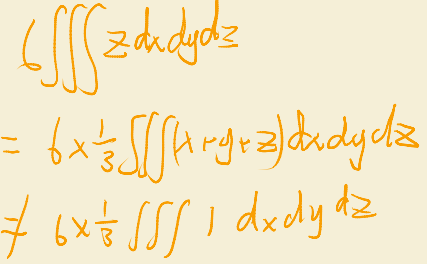 6∭z dx dy dz
= 6×1/3∭(x+y+z)dx dy dz
≠ 6×1/3∭ 1 dx dy dz